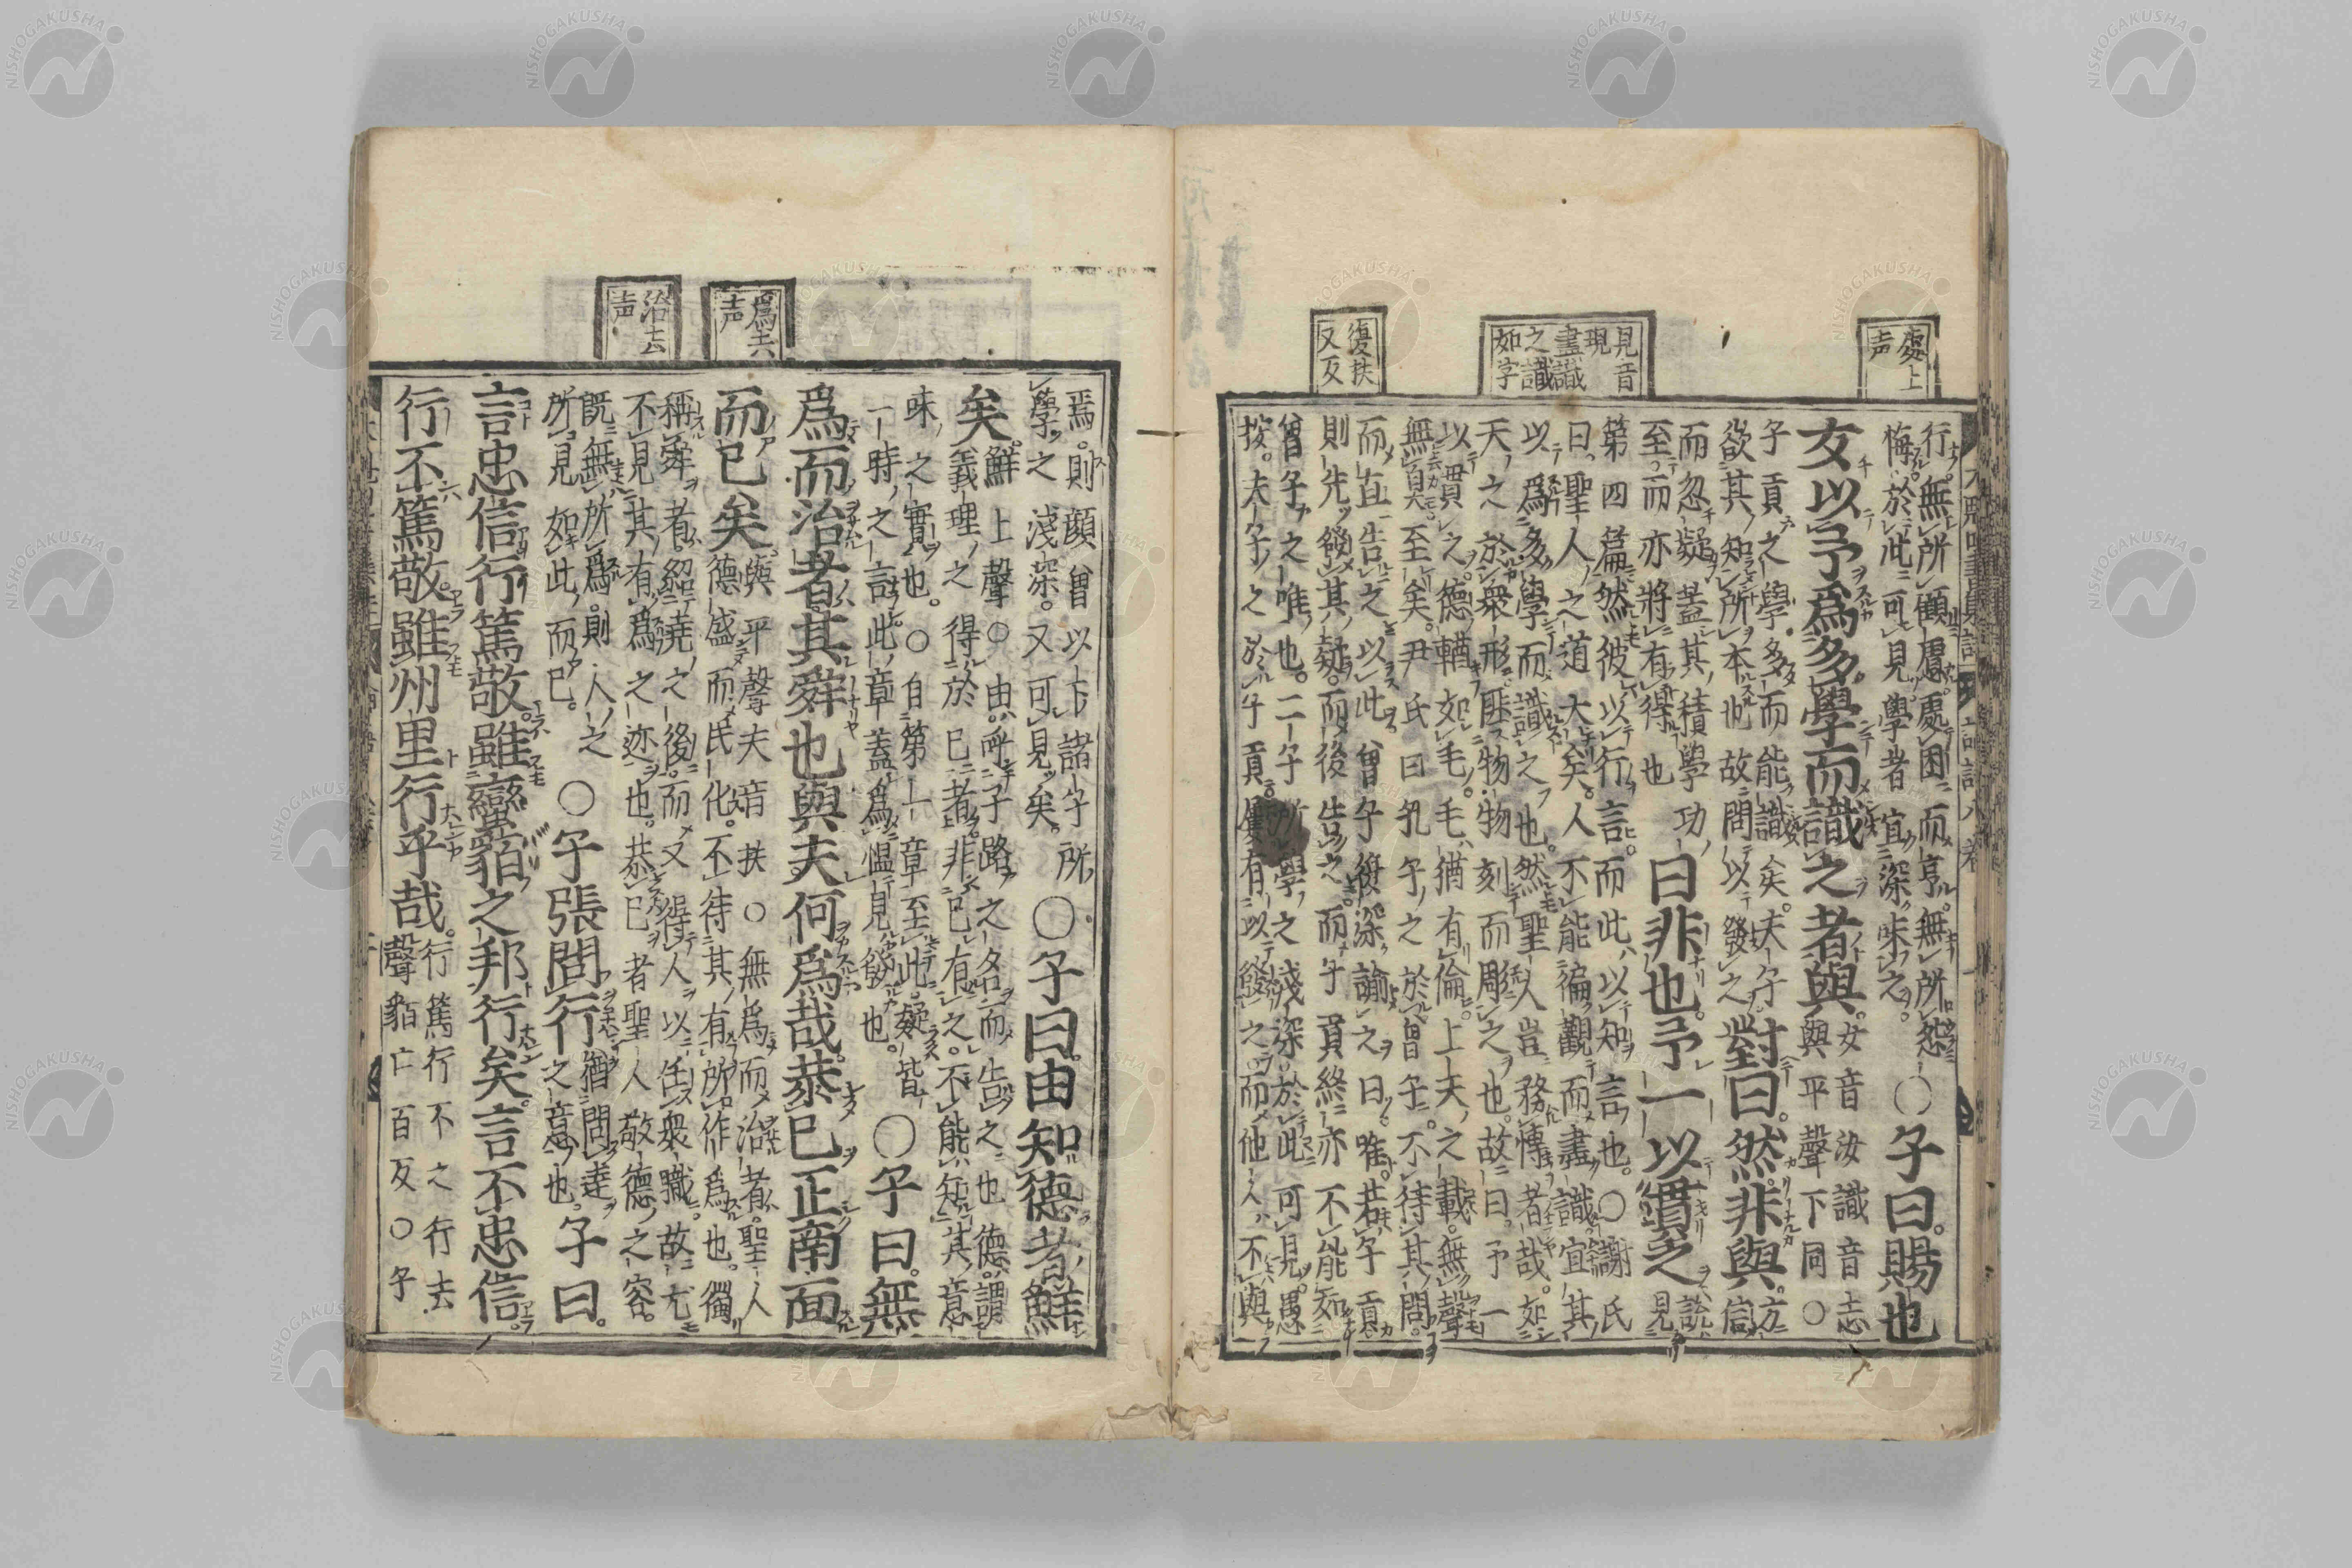 處上
声
見音
現
盡識
之識
如字
復扶
又反
行。無所顧慮。處困而亨。無所怨
悔。於此可見。學者宜深味之。
○子曰。賜也
女以予爲多學而識之者與。
女音汝識音志
與平聲下同○
子貢之學多而能識矣。夫子
欲其知所本也故問以發之
對曰。然。非與。
方信
而忽疑蓋其積學功
至。而亦將有得也
曰非也。予一以貫之
説見
第四篇然彼以行言。而此以知言也。○謝氏
曰。聖人之道大矣。人不能徧觀而盡識宜其
以爲多學而識之也。然聖人豈務博者哉。如
天之於衆形。匪物物刻而彫之也。故曰。予一
以貫之。德輶如毛。毛猶有倫。上天之載。無聲
無臭至矣。尹氏曰孔子之於曾子。不待其問。
而直告之以此曾子復深諭之曰。唯。若子貢
則先發其疑。而後告之。而子貢終亦不能如
曾子之唯也。二子所學之淺深於此可見。愚
按。夫子之於子貢。屢有以發之而他人不與
爲去
声
治去
声
焉。則顔曾以下諸子所
學之淺深。又可見矣。
○子曰。由知德者鮮
矣。
鮮上聲○由。呼子路之名而告之也德。謂
義理之得於己者。非己有之。不能知其意
味之實也。○自第一章至此。疑皆
一時之言此章蓋爲慍見發也。
○子曰。無
爲而治者其舜也與夫何爲哉。恭己正南面
而已矣
與平聲夫音扶○無爲而治者。聖人
德盛而民化。不待其有所作爲也。獨
稱舜者。紹堯之後。而又得人以任衆職故尤
不見其有爲之迹也。恭己者聖人敬德之容。
既無所爲。則人之
所見如此而已。
○子張問行
猶問達
之意也。
子曰。
言忠信行篤敬。雖蠻貊之邦行矣。言不忠信。
行不篤敬。雖州里行乎哉。
行篤行不之行去
聲貊亡百反○子